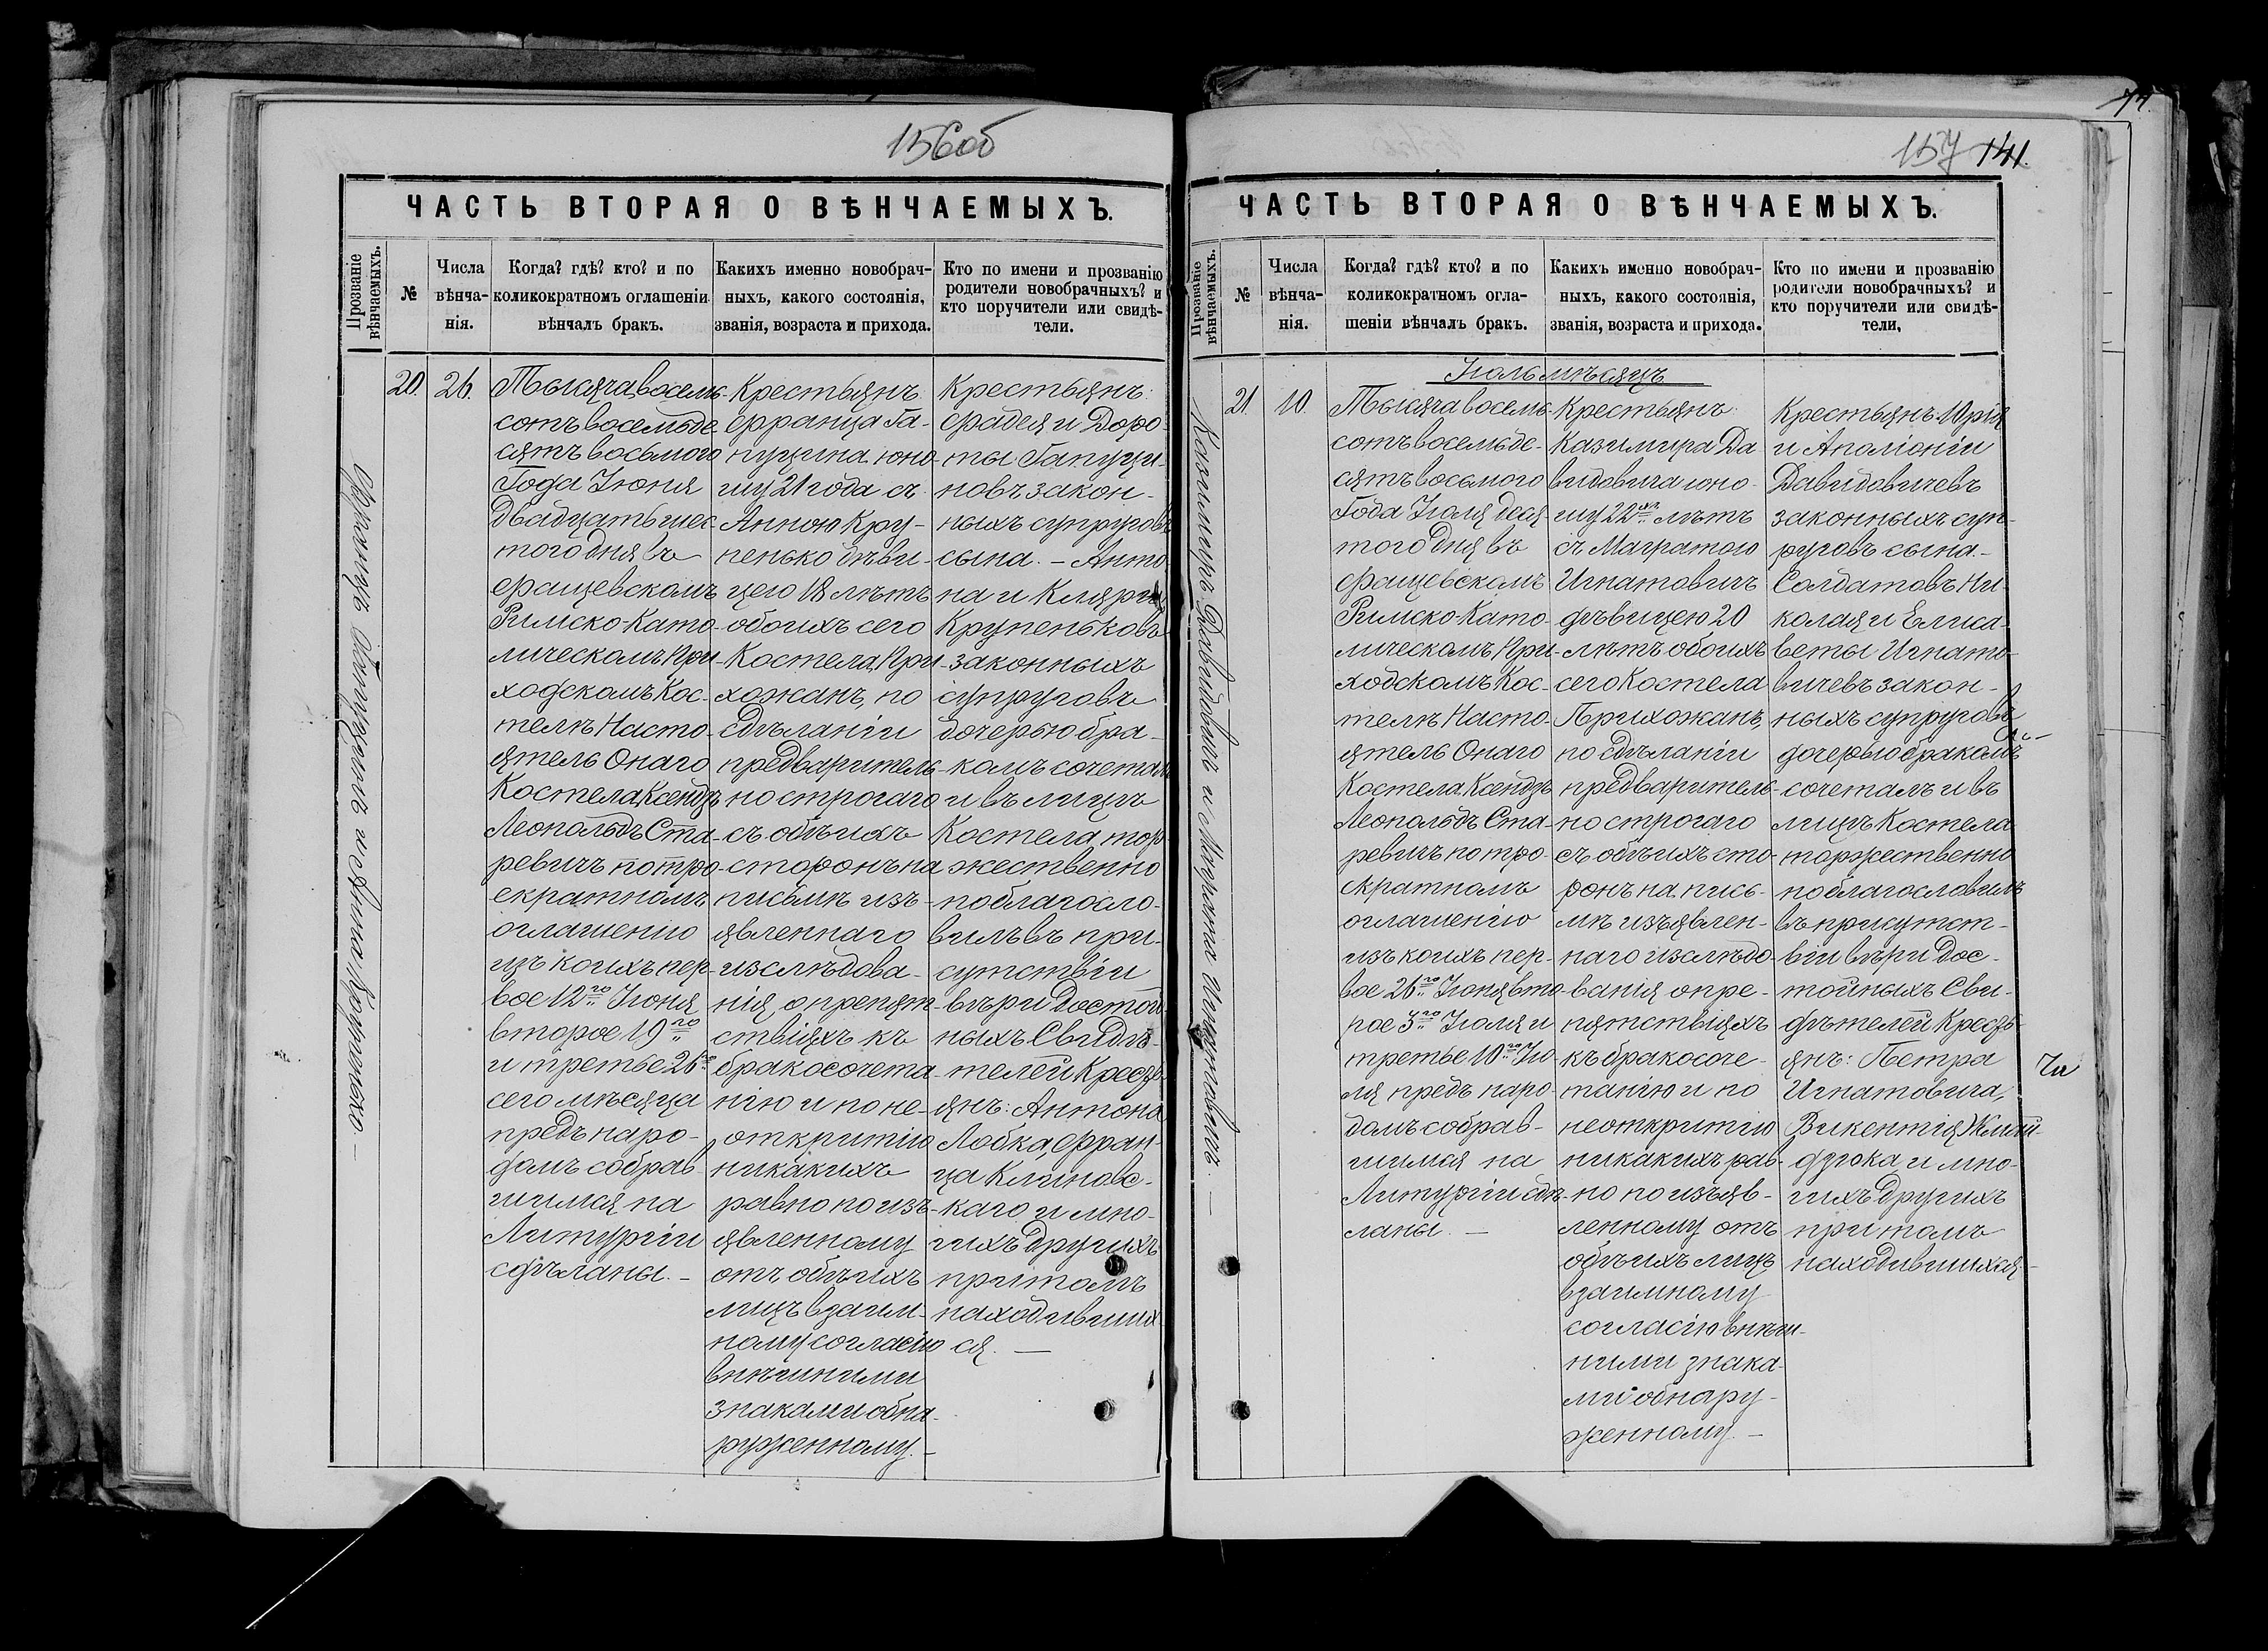 156об
ЧАСТЬ ВТОРАЯ О ВѢНЧАЕМЫХЪ.
Прозваніе вѣнчаемыхъ.
№
Числа вѣнча-нія.
Когда? гдѣ? кто? и по
коликократномъ оглашеніи
вѣнчалъ бракъ.
Какихъ именно новобрач-
ныхъ, какого состоянія,
званія, возраста и прихода.
Кто по имени и прозванію
родители новобрачныхъ? и
кто поручители или свидѣ-
тели.
Францъ Гапуцинъ и Анна Крупенько. —
20.
26.
Тысяча восемь-
сотъ восемьде-
сятъ восьмого
Года Іюня
двадцать шес-
того дня въ
Фращевскомъ
Римско-Като-
лическомъ При-
ходскомъ Кос-
телѣ Насто-
ятель Онаго
Костела Ксендзъ
Леопольдъ Ста-
ревичъ по тро-
екратномъ
оглашенію
изъ коихъ пер-
вое 12го Іюня
второе 19го
и третье 26го
сего мѣсяца
предъ наро-
домъ собрав-
шимся на
Литургіи
сдѣланы. —
Крестьянъ:
Франца Га-
пуцина юно-
шу 21 года съ
Анною Кру-
пенько дѣви-
цею 18 лѣтъ
обоихъ сего
Костела При-
хожанъ, по
Сдѣланіи
предваритель-
но строгаго
съ обѣихъ
сторонъ на
письмѣ изъ-
явленнаго
изслѣдова-
нія о препят-
ствіяхъ къ
бракосочета-
нію и по не-
открытію
никакихъ
равно по изъ-
явленному
отъ обѣихъ
лицъ взаим-
ному согласію
внѣшними
знаками обна-
руженному. —
Крестьянъ:
Фадея и Доро-
ты Гапуци-
новъ закон-
ныхъ супруговъ
сына. — Анто-
на и Кляри
Крупеньковъ
законныхъ
супруговъ
дочерью бра-
комъ сочеталъ
и въ лицѣ
Костела тор-
жественно
поблагосло-
вилъ въ при-
сутствіи
вѣри достой-
ныхъ Свидѣ-
телей Кресть-
янъ: Антона
Лобка, Фран-
ца Клиновс-
каго и мно-
гихъ другихъ
притомъ
находивших-
ся. —
74.
157 141.
ЧАСТЬ ВТОРАЯ О ВѢНЧАЕМЫХЪ.
Прозваніе вѣнчаемыхъ.
№
Числа вѣнча-нія.
Когда? гдѣ? кто? и по
коликократномъ огла-
шеніи вѣнчалъ бракъ.
Какихъ именно новобрач-
ныхъ, какого состоянія,
званія, возраста и прихода.
Кто по имени и прозванію
родители новобрачныхъ? и
кто поручители или свидѣ-
тели.
Іюль мѣсяцъ
21.
10.
Тысяча восемь-
сотъ восемьде-
сятъ восьмого
Года Іюля деся-
того дня въ
Фращевскомъ
Римско-Като-
лическомъ При-
ходскомъ Кос-
телѣ Насто-
ятель Онаго
Костела Ксендзъ
Леопольдъ Ста-
ревичъ по тро-
екратномъ
оглашенію
изъ коихъ пер-
вое 26го Іюня вто-
рое 3го Іюля и
третье 10го Ію-
ля предъ наро-
домъ собрав-
шимся на
Литургіи сдѣ-
ланы. —
Крестьянъ:
Казимира Да-
видовича юно-
шу 22хъ лѣтъ
съ Магратою
Игнатовичъ
дѣвицею 20
лѣтъ обоихъ
сего Костела
Прихожанъ,
по сдѣланіи
предваритель-
но строгаго
съ обѣихъ сто-
ронъ на пись-
мѣ изъявлен-
наго изслѣдо-
ванія о пре-
пятствіяхъ
къ бракосоче-
танію и по
неоткритію
никакихъ рав-
но по изъяв-
ленному отъ
обѣихъ лицъ
взаимному
согласію внѣш-
ними знака-
ми обнару-
женному. —
Крестьянъ Юрія
и Аполіоніи
Давидовичевъ
законныхъ суп-
руговъ сына. —
Солдатовъ Ни-
колая и Елиса-
веты Игнато-
вичевъ закон-
ныхъ супруговъ
дочерью бракомъ
сочеталъ и въ
лицѣ Костела
торжественно
поблагословилъ
въ присутст-
віи вѣри Дос-
тойныхъ Сви-
дѣтелей Кресть-
янъ: Петра
Игнатовича,
Викентія
и мно-
гихъ другихъ
при томъ
находившихся —